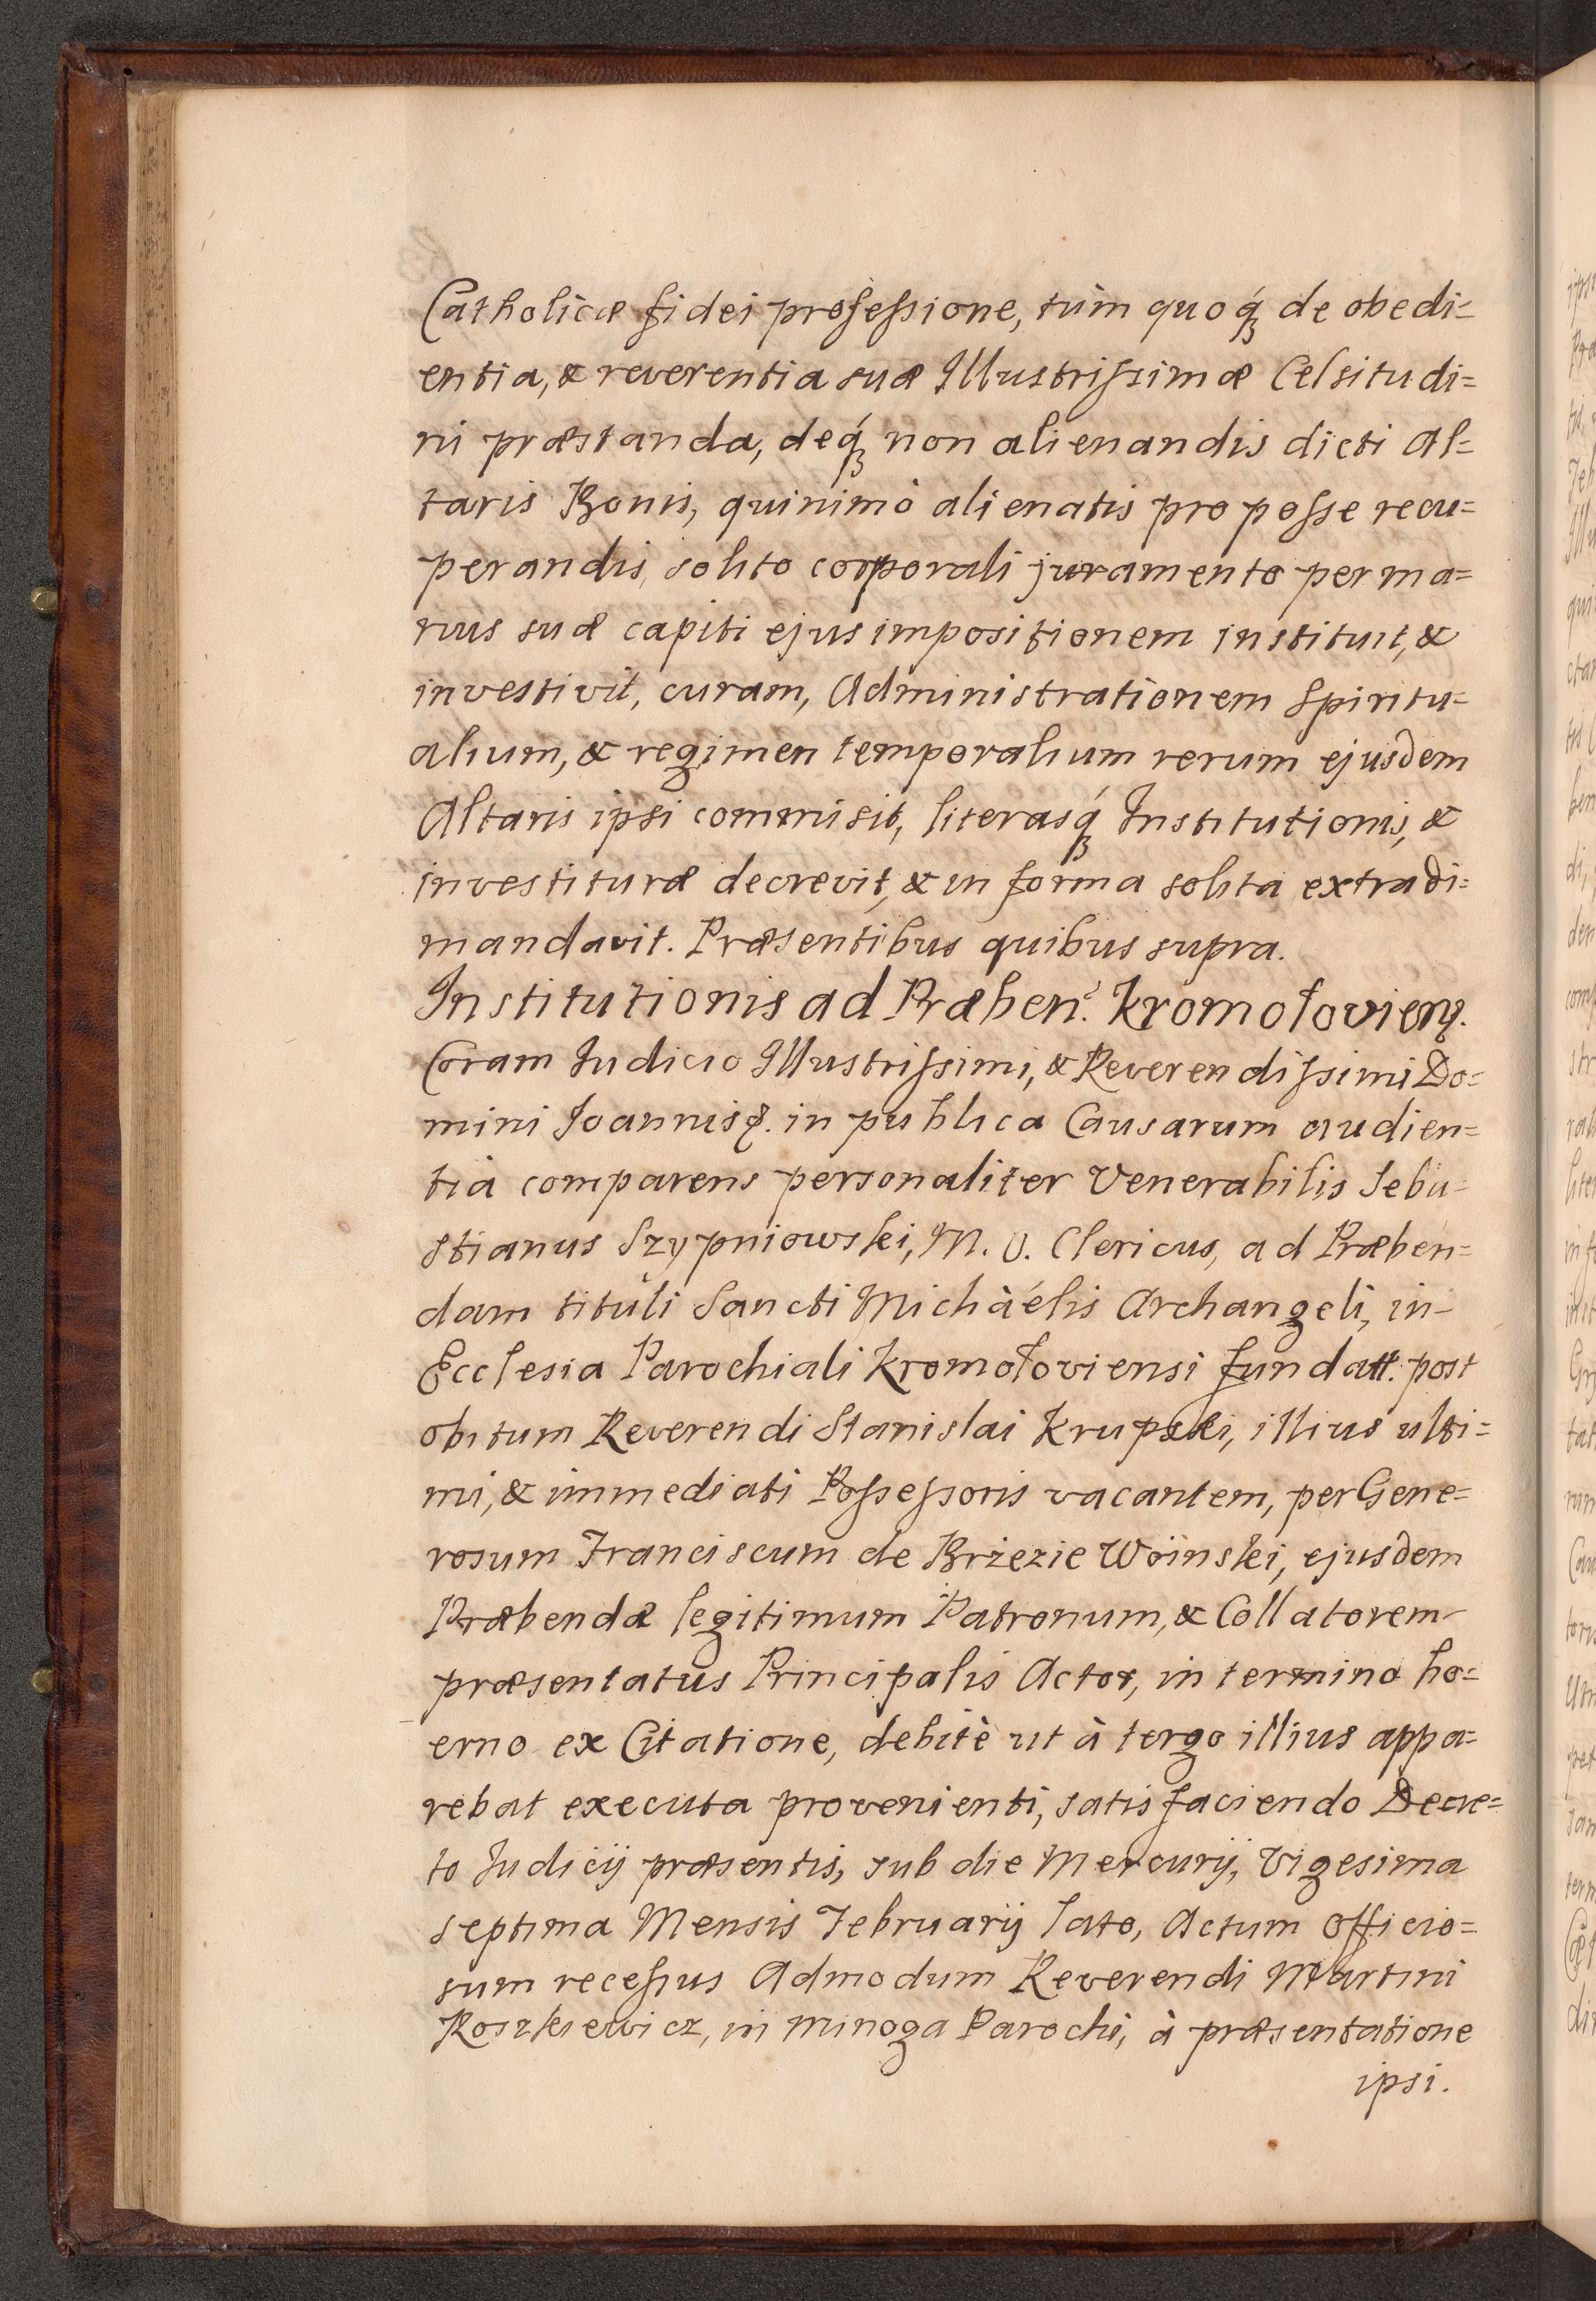 Catholicæ fidei professione, tùm quoq́ꝫ de obedi=
entia, & reverentia suæ Illustrissimæ Celsitudi=
ni præstanda, deq́ꝫ non alienandis dicti Al=
taris Bonis, quinimò alienatis pro posse recu=
perandis, solito corporali juramento per ma=
nus suæ capiti ejus impositionem instituit, &
investivit, curam, Administrationem Spiritu=
alium, & regimen temporalium rerum ejusdem
Altaris ipsi commisit, literasq́ꝫ Institutionis, &
investituræ decrevit, & in forma solita extradi=
mandavit. Præsentibus quibus supra.
Institutionis ad Præben: Kromołovien.
Coram Iudicio Illustrissimi, & Reverendissimi Do=
mini Ioannis &. in publica Causarum audien=
tia comparens personaliter Venerabilis Seba=
stianus Szypniowski, M. O. Clericus, ad Præben=
dam tituli Sancti Michàélis Archangeli, in-
Ecclesia Parochiali Kromołoviensi fundatt. post
obitum Reverendi Stanislai Krupski, illius ulti=
mi, & immediati Possessoris vacantem, per Gene=
rosum Franciscum de Brżezie Woinski, ejusdem
Præbendæ legitimum Patronum, & Collatorem-
præsentatus Principalis Actor, in termino ho=
erno ex Citatione, debitè ut à tergo illius appa=
rebat executa provenienti, satisfaciendo Decre=
to Iudicij præsentis, sub die Mercurij, Vigesima
septima Mensis Februarij lato, Actum Officio=
sum recessus Admodum Reverendi Martini
Roszkiewicz, in Minoga Parochi, à præsentatione
ipsi.